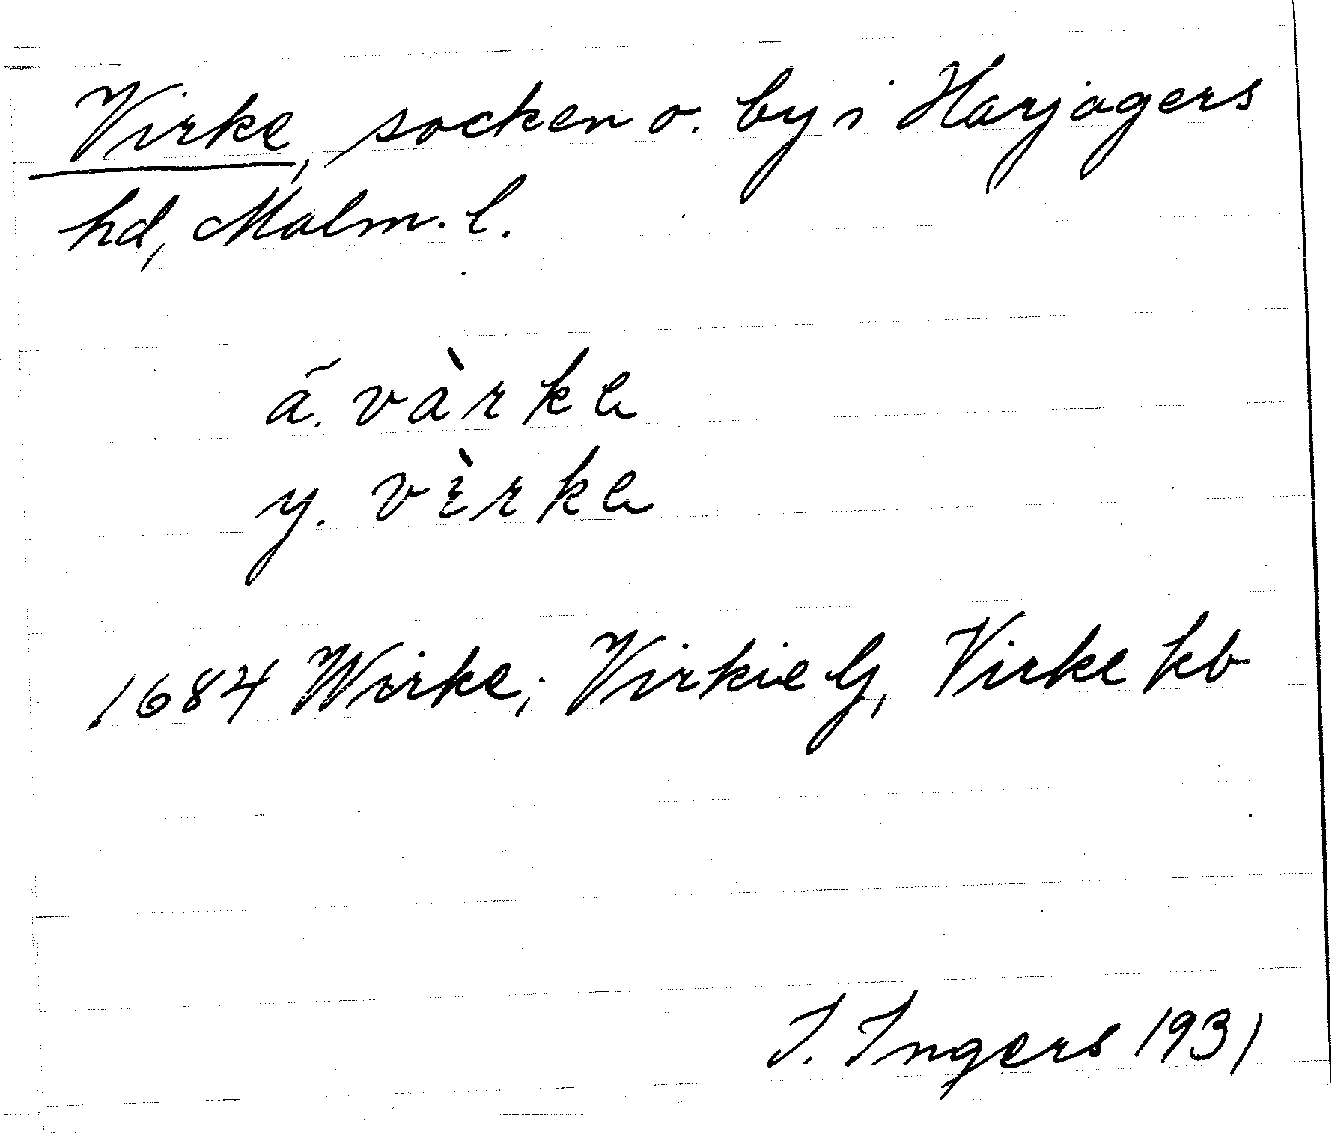 Virke, socken o. by i Harjagers
hd, Malm. l.
ä. vàrkə
y. vìrkə
1684 Wirke; Virkie G, Virke kb
I. Ingers 1931